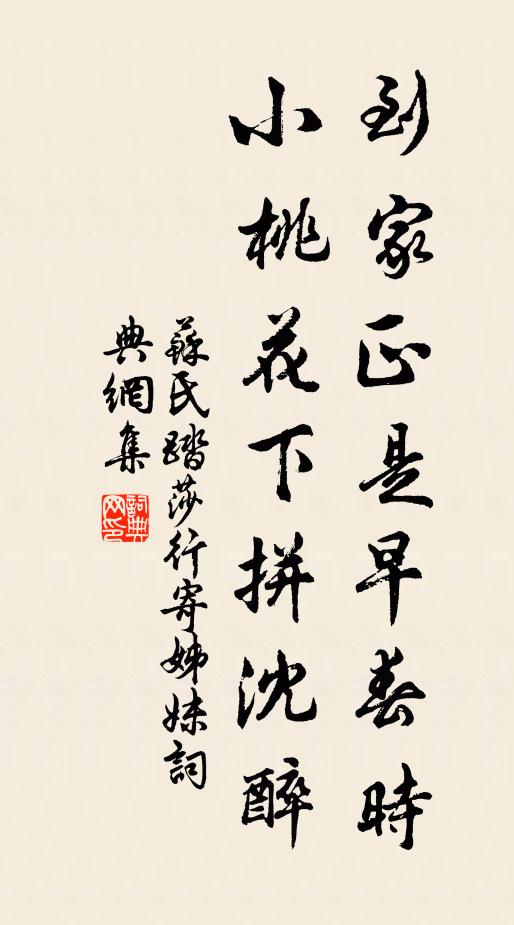 到家正是早春時
小桃花下拼沈醉
蘇氏踏莎行寄姊妹詞
典網集
詞典網印